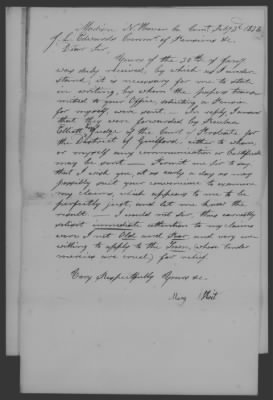 Madison N. Haven Co. Cont. Feby 3d 1852
J. L. Edwards Comr. of Pensions &c
Dear Sir,
Yours of the 30th of Jany
was duly received, by which I under-
stand, it is necessary for me to state
in writing, by whom the papers trans-
mitted to your Office, soliciting a Pension
for myself, were sent. In reply I answer
that they were forwarded by Reuben
Elliott, Judge of the Court of Probate for
the District of Guilford, either to whom,
or myself any communication or Certificate
may be sent — Permit me Sir to say
that I wish you, at as early a day as may
possibly suit your convenience to examine
my claims, which appears to me to be
perfectly just, and let me know the
result. — I would not Sir, thus earnestly
solicit immediate attention to my claims
were I not Old and Poor and very un-
willing to apply to the Town, whose tender
mercies are cruel, for relief.
Very Respectfully Yours &c.